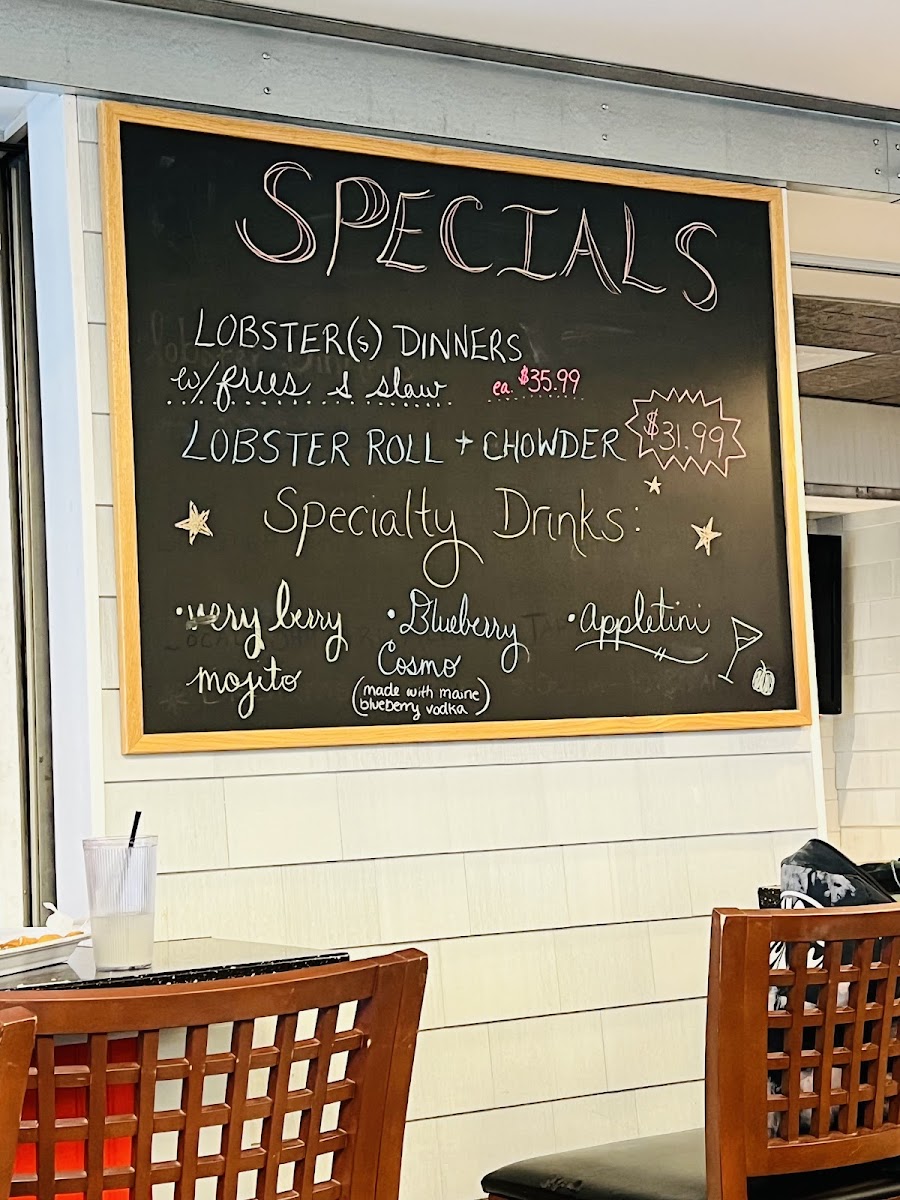 SPECIALS
LOBSTER(s) DINNERS
w/ fries & slaw ea $35.99
LOBSTER ROLL + CHOWDER $31.99
Specialty Drinks:
• very berry • Blueberry • Appletini
mojito Cosmo
(made with maine
blueberry vodka)